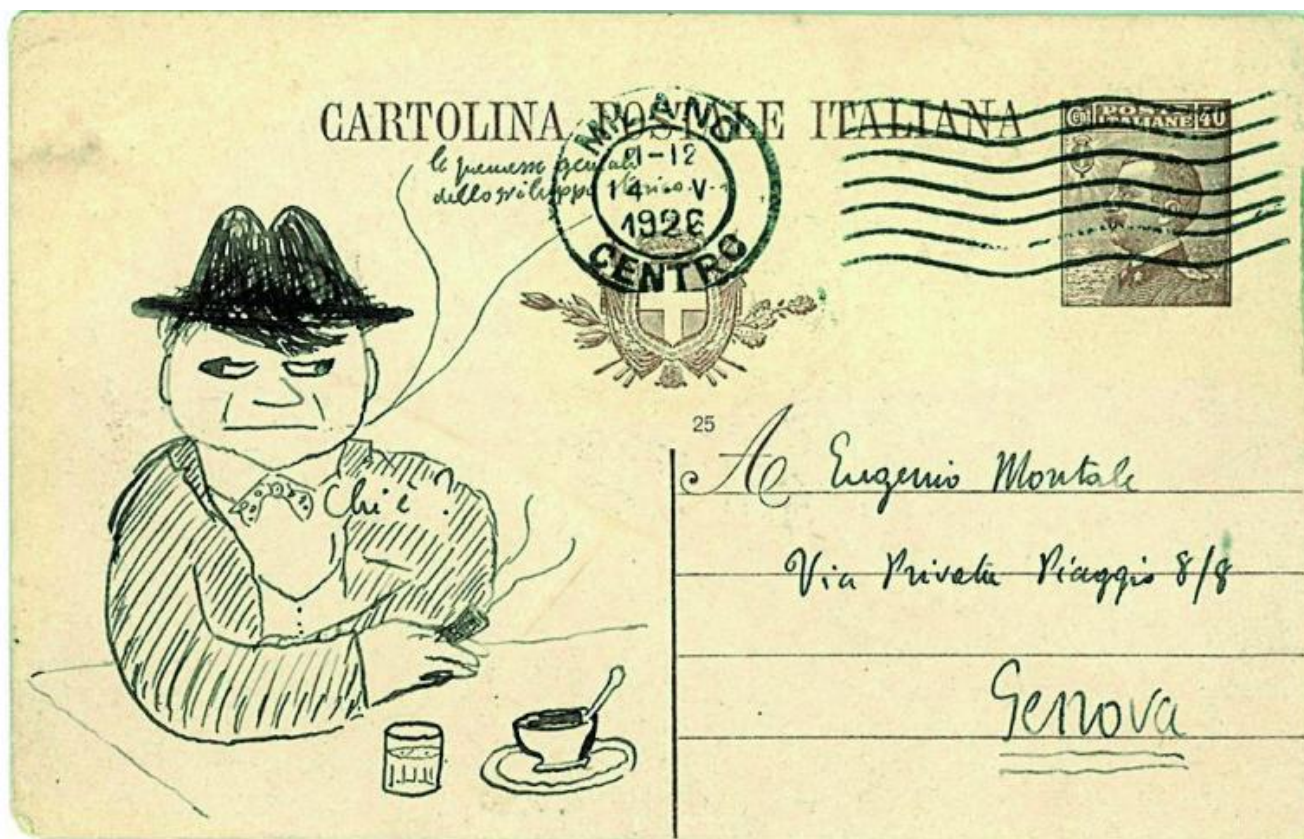 CARTOLINA POSTALE ITALIANA
POSTE ITALIANE
40
MILANO
14 V
1926
CENTRO
le premesse
dello sviluppo
Chi è ?
25
A Eugenio Montale
Via Privata Piaggio 8/8
Genova